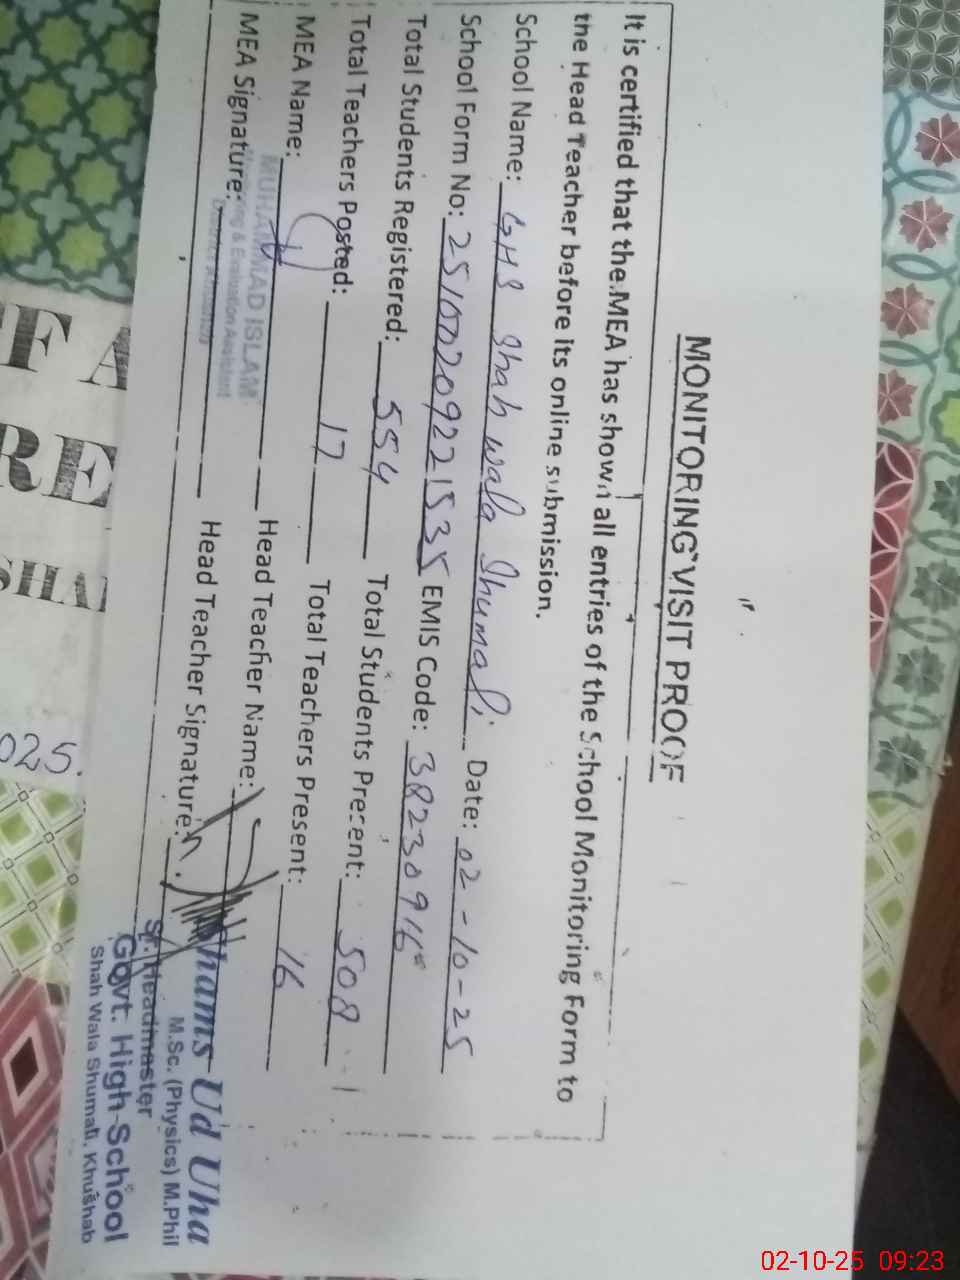 MONITORING VISIT PROOF
It is certified that the MEA has shown all entries of the School Monitoring Form to
the Head Teacher before its online submission.
School Name: GHS Shah wala Shumali Date: 02-10-25
School Form No: 25100209221535 EMIS Code: 38230916
Total Students Registered: 554 Total Students Present: 508
Total Teachers Posted: 17 Total Teachers Present: 16
MEA Name: Head Teacher Name:
MUHAMMAD ISLAM
MEA Signature: Head Teacher Signature:
& Evaluation Assistant
Shams Ud Uha
M.Sc. (Physics) M.Phil
Sr. Headmaster
Govt. High School
Shah Wala Shumali, Khushab
F A
RE
SHA
025.
02-10-25 09:23